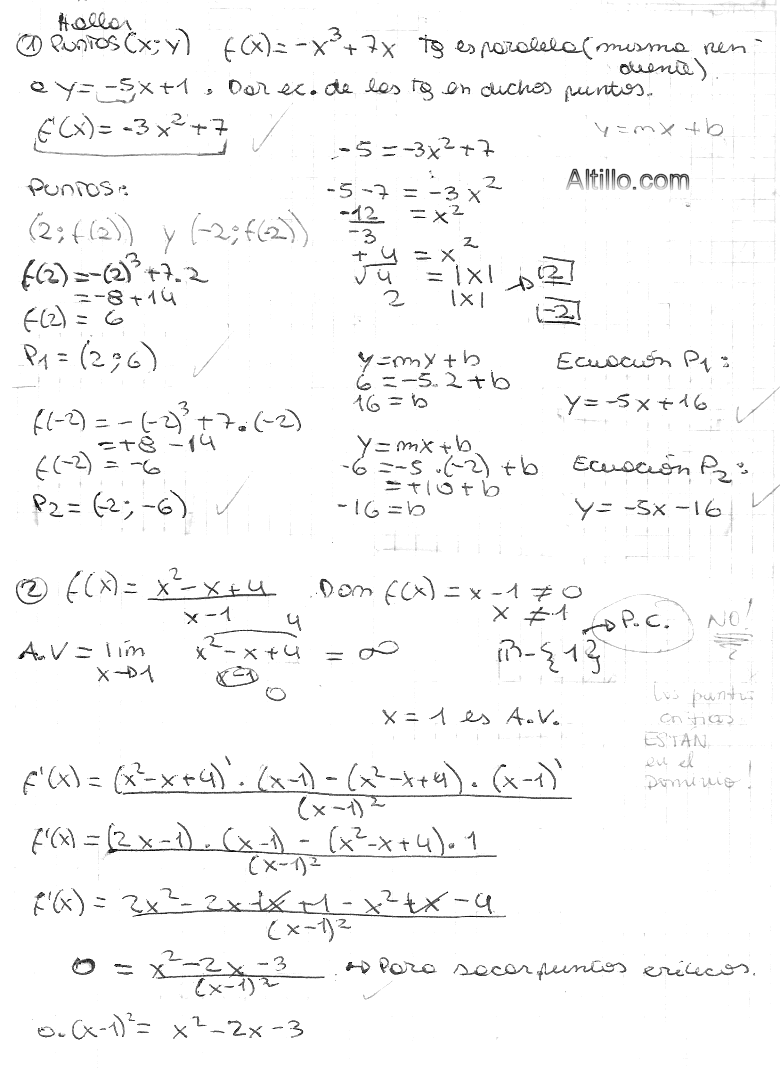 Hallar
① PUNTOS (X; Y) f(x) = -x³ + 7x Tg es paralela (misma pen-
diente)
a y = -5x + 1. Dar ec. de las tg en dichos puntos.
f'(x) = -3x² + 7 y = mx + b
-5 = -3x² + 7
Altillo.com
PUNTOS: -5 - 7 = -3x²
(2; f(2)) y (-2; f(-2)) -12/-3 = x²
+4 = x²
f(2) = -(2)³ + 7.2 √4 = |x| → 2
= -8 + 14 2 |x| -2
f(2) = 6
P1 = (2; 6) y = mx + b Ecuación P1:
6 = -5.2 + b
16 = b y = -5x + 16
f(-2) = -(-2)³ + 7.(-2)
= +8 - 14 y = mx + b
f(-2) = -6 -6 = -5.(-2) + b Ecuación P2:
= +10 + b
P2 = (-2; -6) -16 = b y = -5x - 16
② f(x) = (x² - x + 4)/(x - 1) Dom f(x) = x - 1 ≠ 0
x ≠ 1 → P.C. NO!
4
A.V = lím x→1 (x² - x + 4)/(x-1) = ∞ ℝ - {1}
0
los puntos
x = 1 es A.V. críticos
ESTAN
en el
Dominio!
f'(x) = ((x² - x + 4)' . (x-1) - (x² - x + 4) . (x-1)')/(x-1)²
f'(x) = ((2x - 1) . (x-1) - (x² - x + 4) . 1)/(x-1)²
f'(x) = (2x² - 2x - x + 1 - x² + x - 4)/(x-1)²
0 = (x² - 2x - 3)/(x-1)² → Para sacar puntos críticos.
0.(x-1)² = x² - 2x - 3